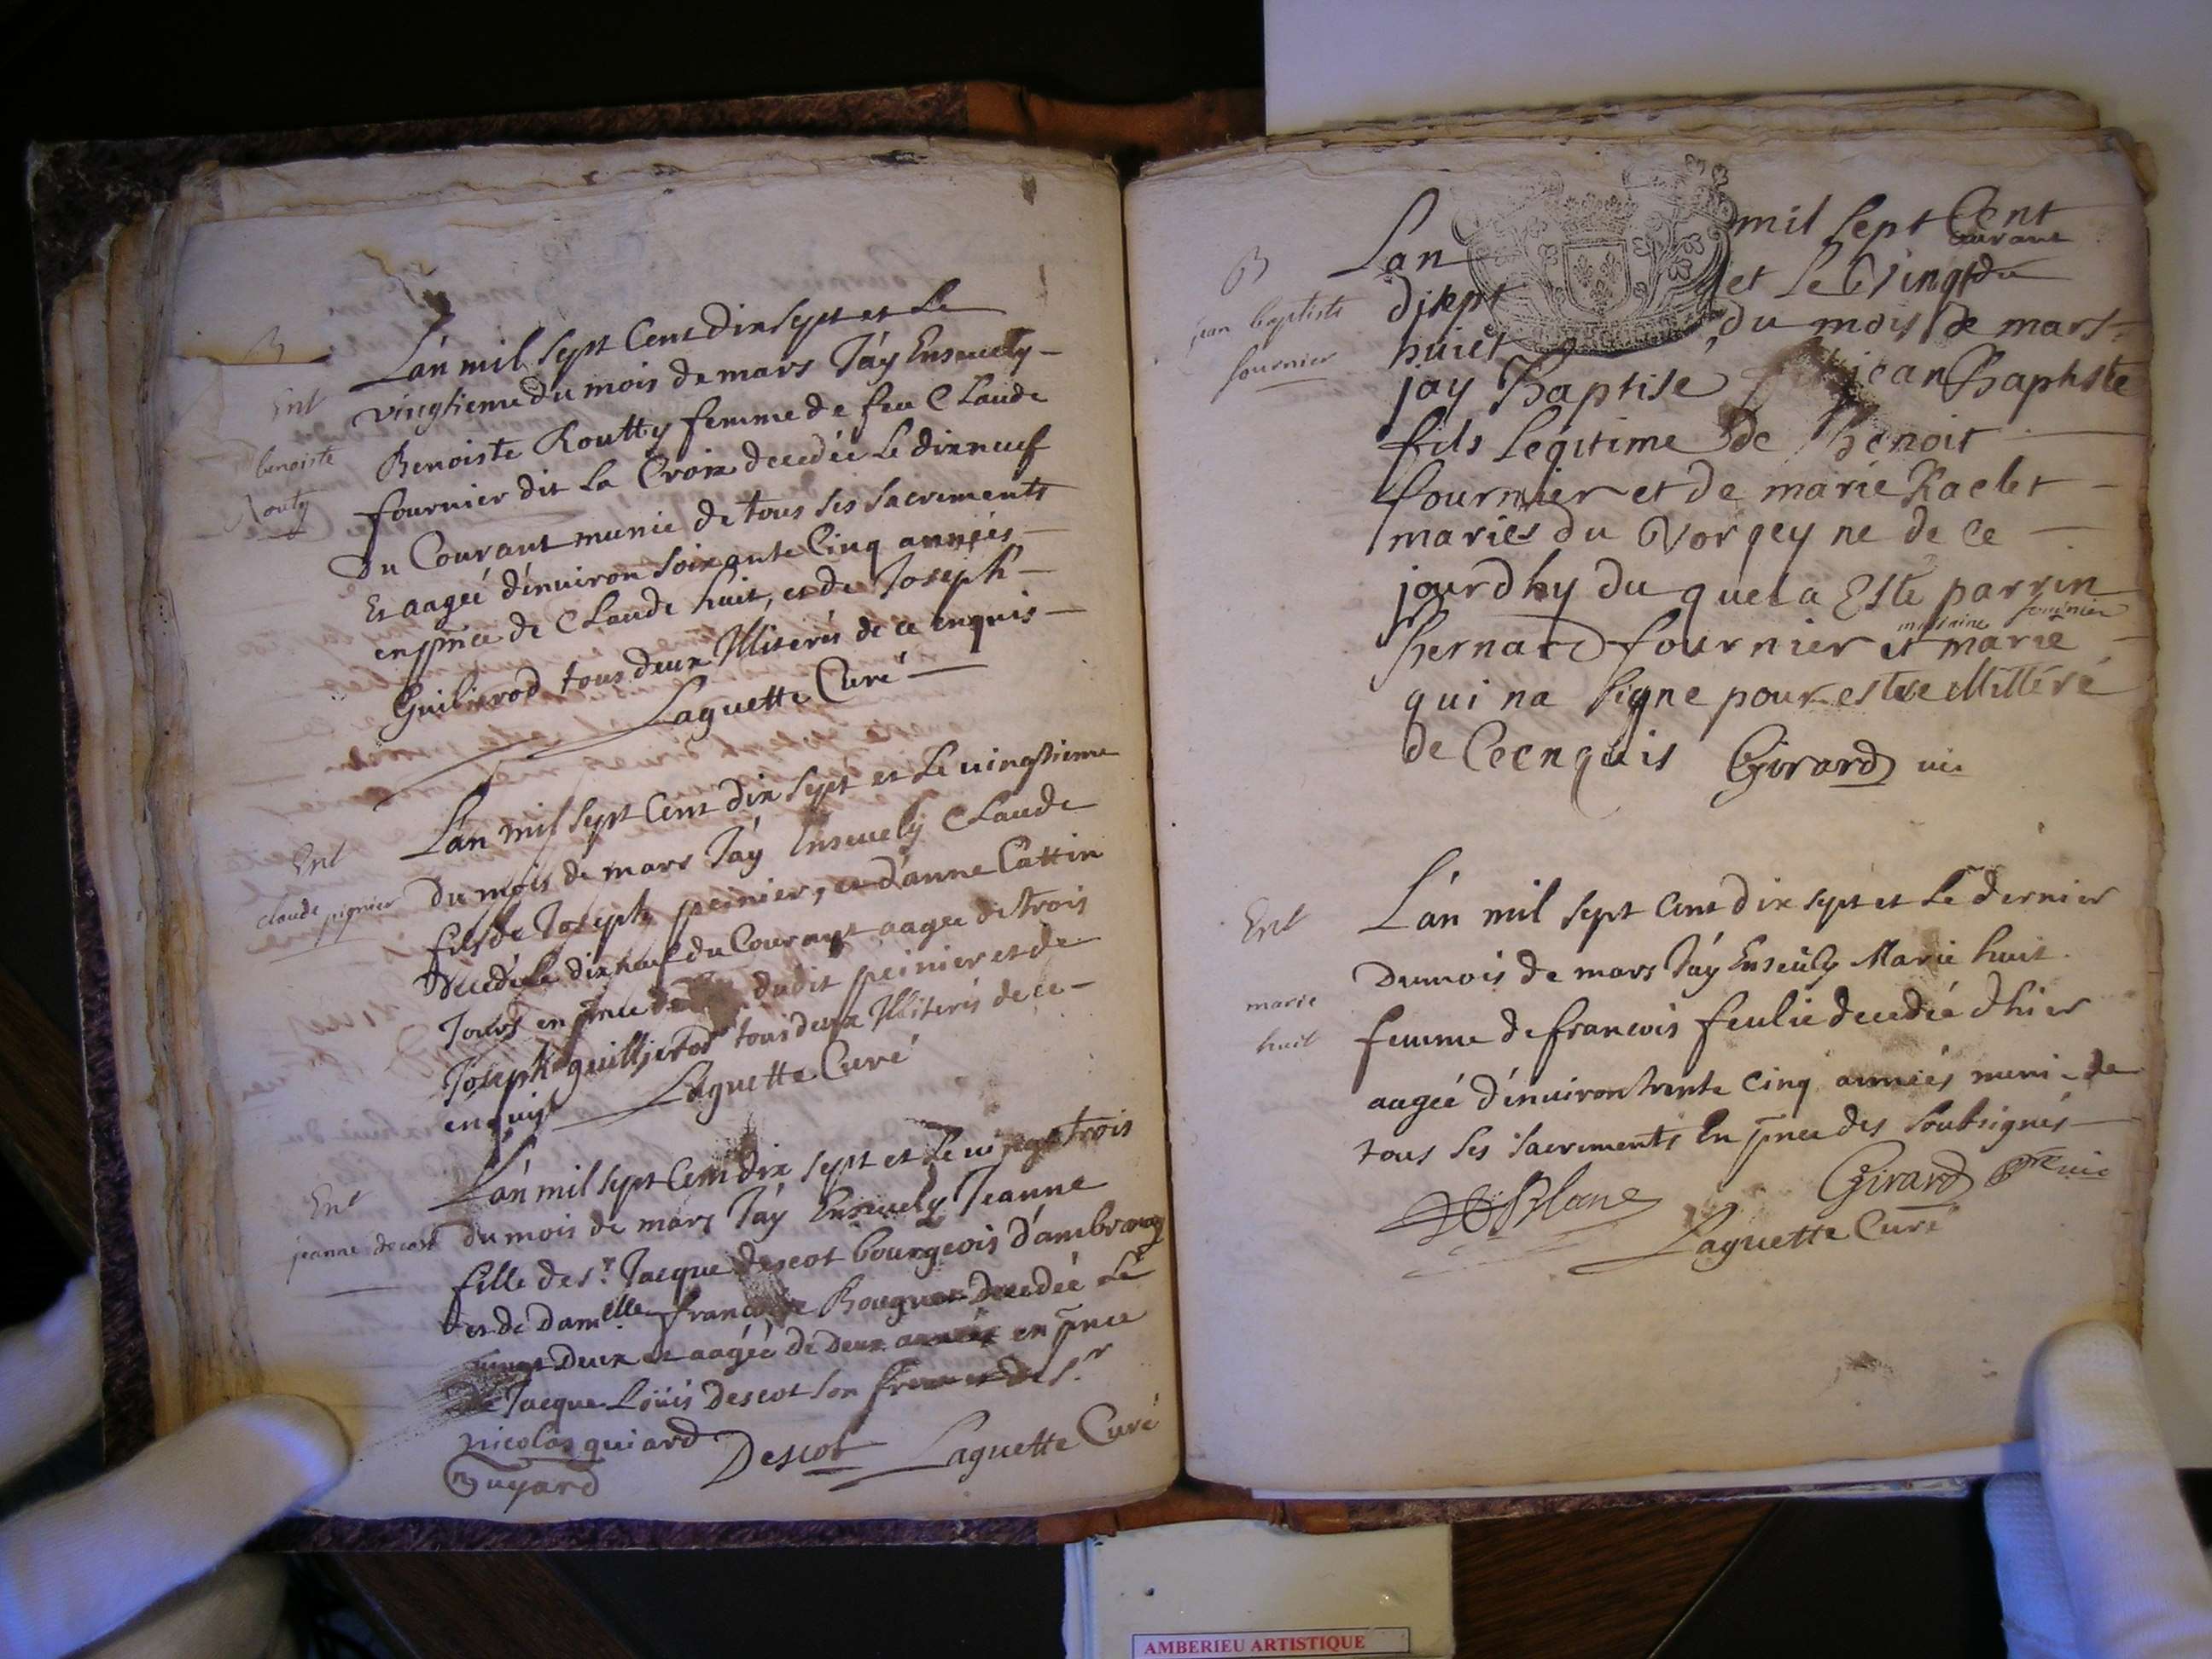 B
Ent
benoiste
Routy
L'an mil sept Cent Dix sept et Le
vingtieme du mois de mars J'ay Ensevely
Benoiste Routty femme de feu Claude
fournier dit La Croix decedée Le dixneuf
Du Courant munie de tous ses Sacrements
Et aagée d'environ soixante Cinq années
en pnce de Claude huit, et de Joseph
Guilierod tous deux Illiterés de ce enquis
Laguette Curé
Ent
claude pignier
L'an mil sept Cent dix sept et Le vingtieme
du mois de mars J'ay Ensevely Claude
fils de Joseph peinier, et d'anne Cattin
Decedé le dixneuf du Courant aagée de trois
Jours en pnce dudit peinier et de
Joseph guillierod tous deux Illiterés de ce
enquis Laguette Curé
Ent
jeanne decost
L'an mil sept Cent dix sept et Le vingt trois
du mois de mars J'ay Ensevely Jeanne
fille de sr. Jacque Descot bourgeois d'ambronay
et de Damelle francoise Bouguet Decedée Le
vingt Deux et aagée de Deux années en pnce
de Jacque Loüis Descot son frere et de Sr
nicolas guiard
Guyard Descot Laguette Curé
B
jean baptiste
fournier
Lan mil sept Cent
disept et Le Vingt du
courant
huict du mois de mars
jay Baptisé jean Baptiste
fils Legitime de Benoit
fournier et de marie Raclet
mariés du Vorgey ne de ce
jourdhy du quel a Esté parrin
marraine fournier
Bernard fournier et marie
qui na signe pour estre Illitteré
de Ceenquis Girard vic
Ent
marie
huit
L'an mil sept Cent dix sept et Le dernier
Dumois de mars J'ay Ensevely Marie huit
femme de francois feulie decedée d'hier
aagée d'environ trente Cinq années muni de
tous ses sacrements En pnce des Soubsignés
Blanc Girard ptre vic
Laguette Curé
AMBERIEU ARTISTIQUE